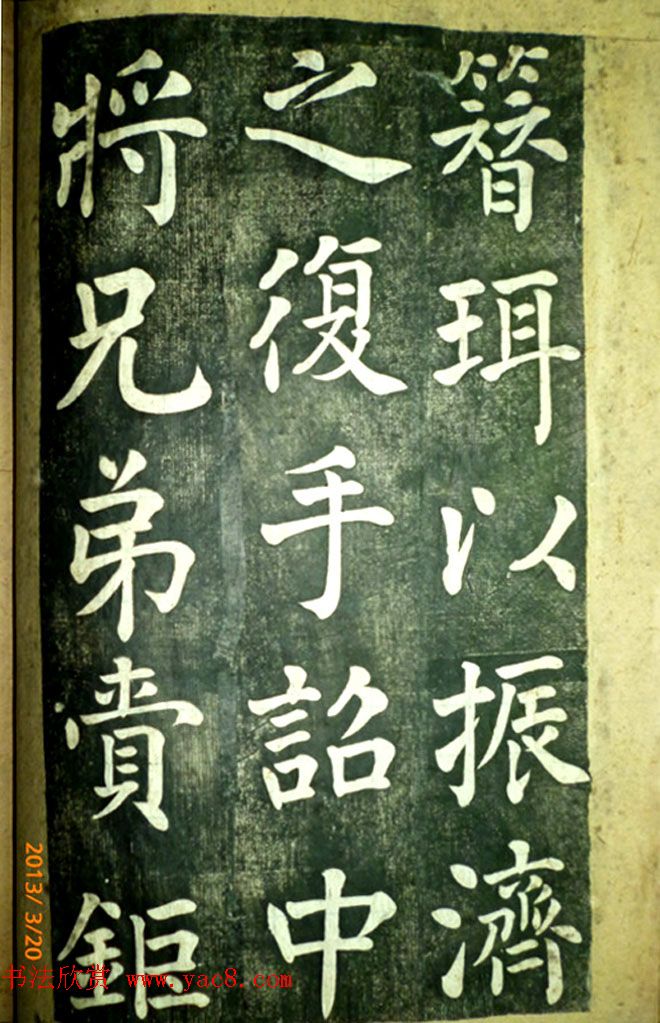 簪珥以振濟
之復手詔中
將兄弟賷鉅
2013/ 3/20
书法欣赏 www.yac8.com